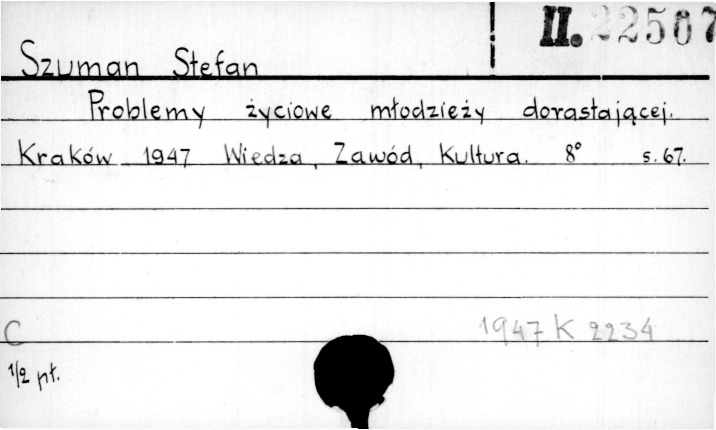 II. 22507
Szuman Stefan
Problemy życiowe młodzieży dorastającej.
Kraków 1947 Wiedza, Zawód, Kultura. 8° s. 67.
C
1947 K 2234
1/2 pł.